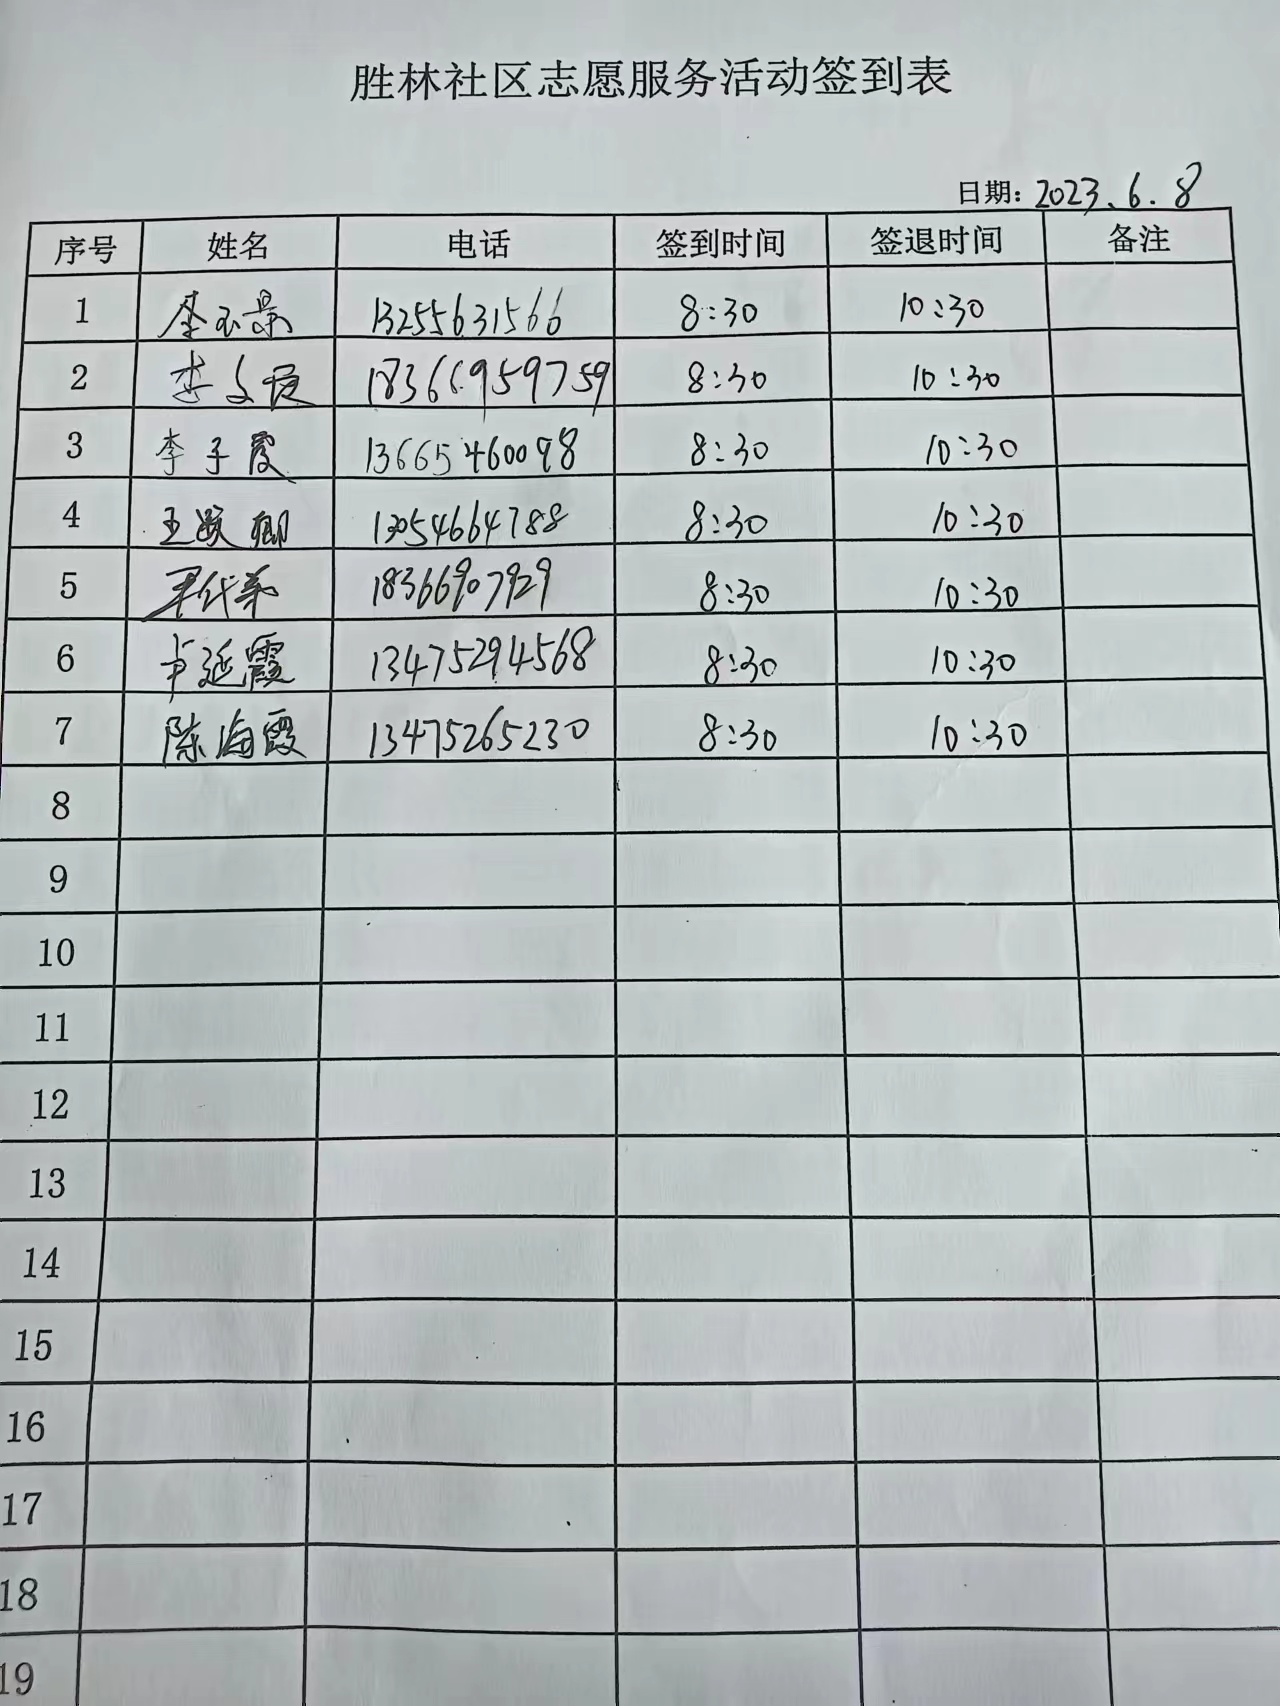 胜林社区志愿服务活动签到表
日期: 2023.6.8
序号 姓名 电话 签到时间 签退时间 备注
1 李玉景 13255631566 8:30 10:30
2 李文霞 18366959759 8:30 10:30
3 李子霞 13665460098 8:30 10:30
4 王跃卿 13054664788 8:30 10:30
5 18366907929 8:30 10:30
6 卢延霞 13475294568 8:30 10:30
7 陈海霞 13475265230 8:30 10:30
8
9
10
11
12
13
14
15
16
17
18
19